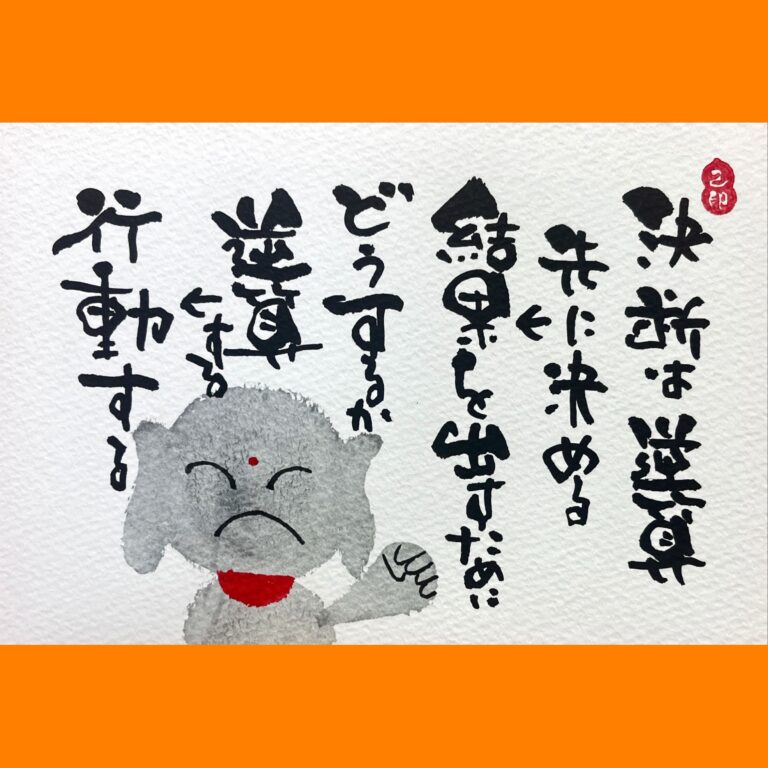 決断は逆算
先に決める
結果を出すために
どうするか
逆算する
行動する